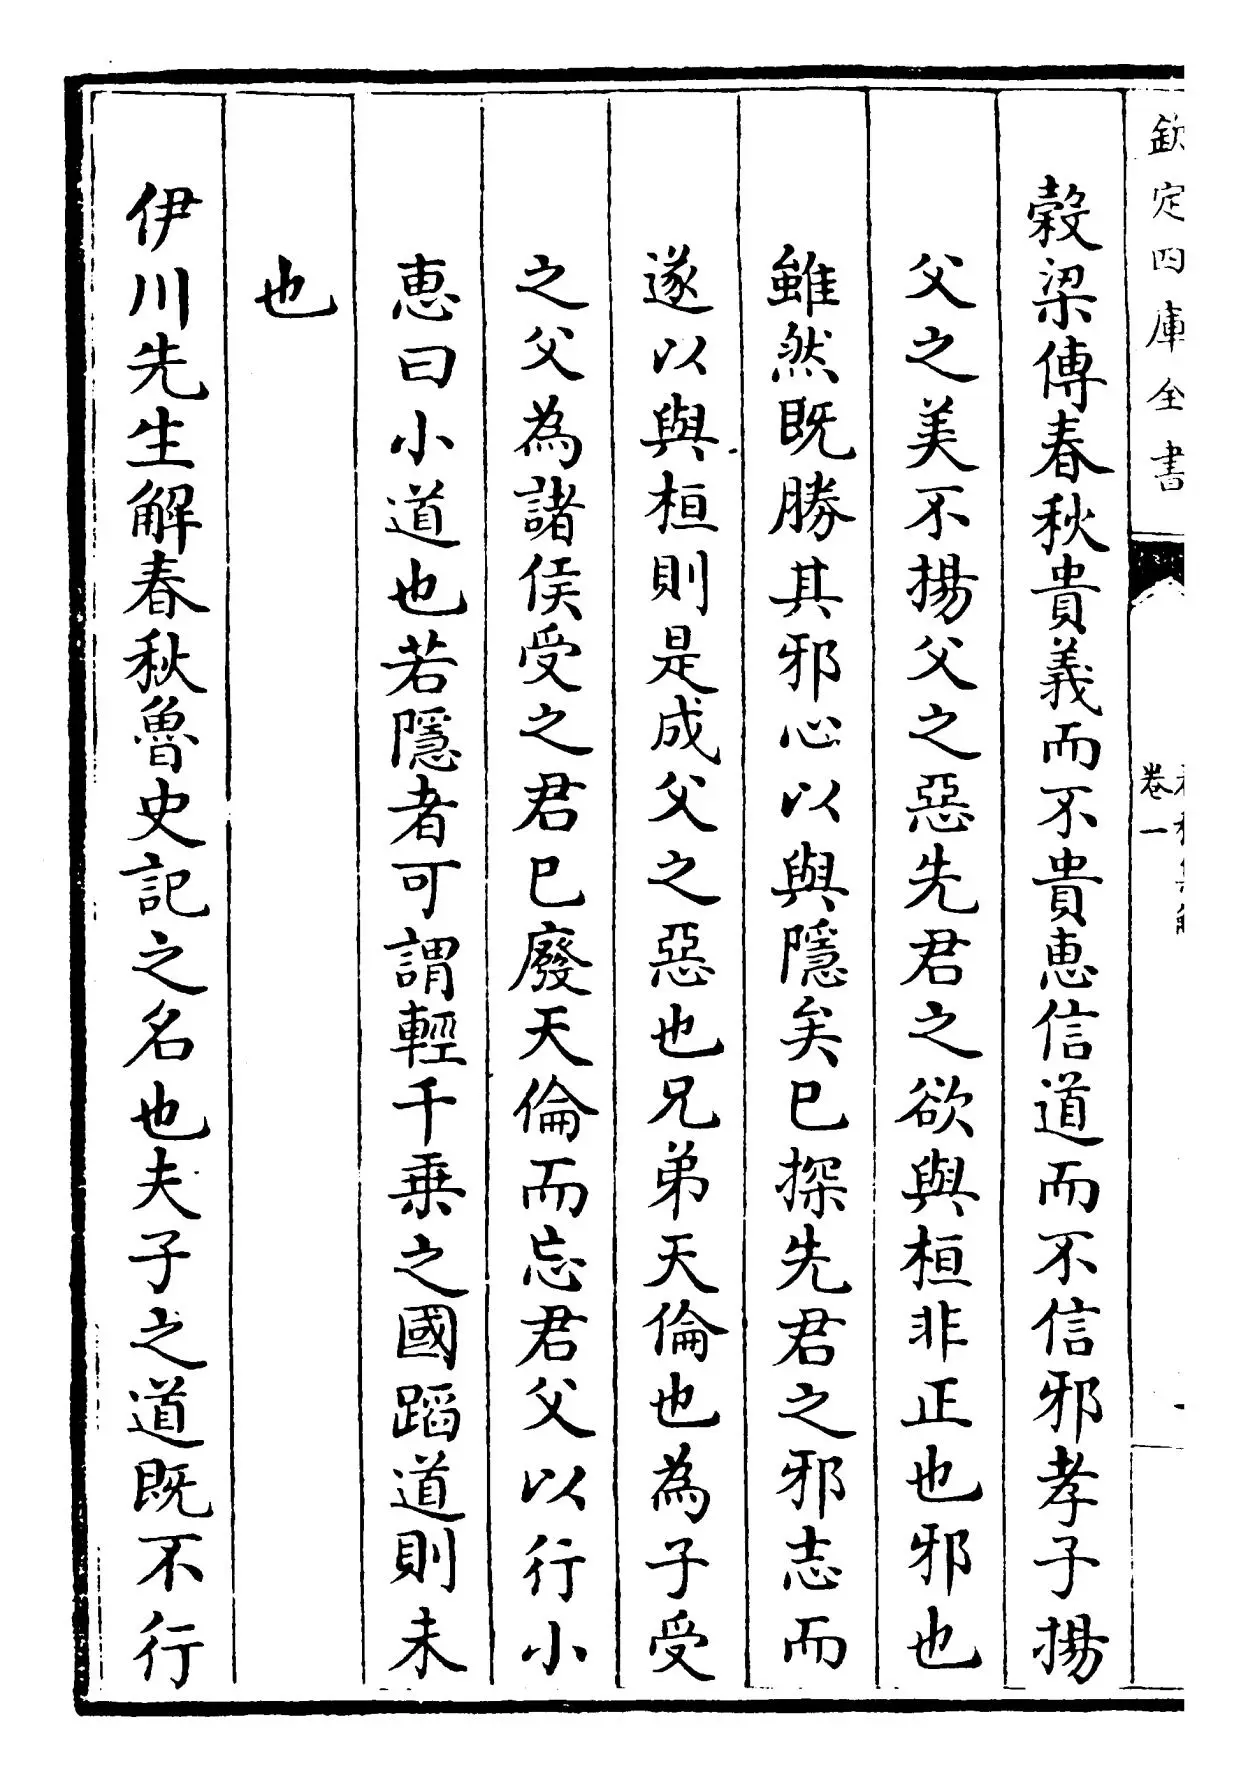 欽定四庫全書
卷一
穀梁傳春秋貴義而不貴恵信道而不信邪孝子揚
父之美不揚父之惡先君之欲與桓非正也邪也
雖然既勝其邪心以與隱矣巳探先君之邪志而
遂以與桓則是成父之惡也兄弟天倫也為子受
之父為諸侯受之君巳廢天倫而忘君父以行小
恵曰小道也若隱者可謂輕千乗之國蹈道則未
也
伊川先生解春秋魯史記之名也夫子之道既不行